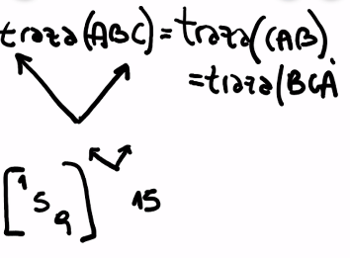 traza(ABC) = traza(CAB).
= traza(BCA
[1 5 9] 15